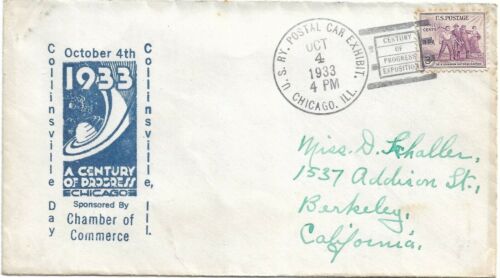 October 4th
Collinsville Day
Collinsville, Ill.
1933
A CENTURY
OF PROGRESS
CHICAGO
Sponsored By
Chamber of
Commerce
U.S. RY. POSTAL CAR EXHIBIT.
OCT
4
1933
4 PM
CHICAGO, ILL.
CENTURY
OF
PROGRESS
EXPOSITION
U.S. POSTAGE
CENTS
3
Miss. D. Schaller,
1537 Addison St.,
Berkeley,
California.